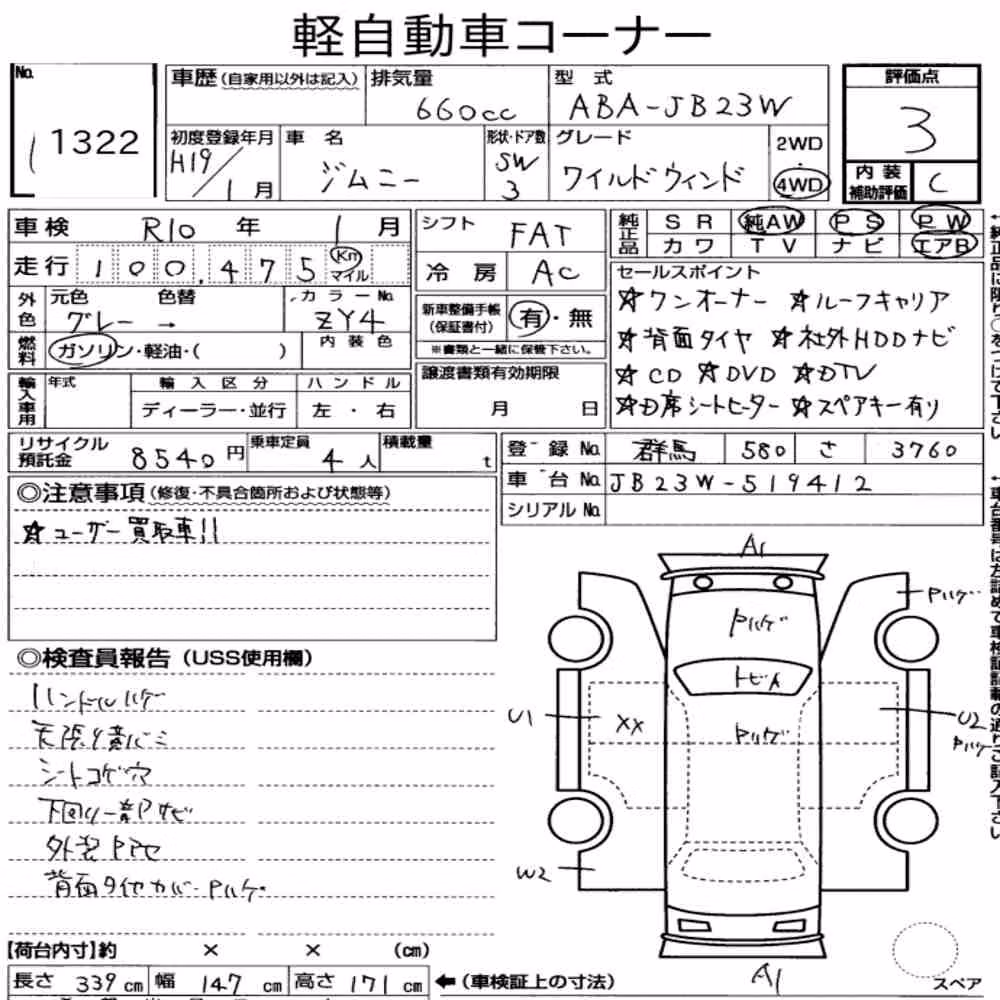 軽自動車コーナー
No. 1322
車歴(自家用以外は記入) 排気量 660cc 型式 ABA-JB23W 評価点 3
初度登録年月 H19/1月 車名 ジムニー 形状・ドア数 SW 3 グレード ワイルドウィンド 2WD・4WD
内装補助評価 C
車検 R10年 1月 シフト FAT 純正品 SR 純AW PS PW
カワ TV ナビ エアB
走行 100,475 Km マイル 冷房 AC
セールスポイント
外色 元色 グレー → 色替 カラーNo. ZY4
新車整備手帳(保証書付) 有・無
※書類と一緒に保管下さい。
☆ワンオーナー ☆ルーフキャリア
☆背面タイヤ ☆社外HDDナビ
☆CD ☆DVD ☆DTV
☆D席シートヒーター ☆スペアキー有り
燃料 ガソリン・軽油・( ) 内装色
輸入車用 年式 輸入区分 ハンドル
ディーラー・並行 左・右
譲渡書類有効期限
月 日
リサイクル預託金 8540円 乗車定員 4人 積載量 t
登録No. 群馬 580 さ 3760
車台No. JB23W-519412
シリアルNo.
◎注意事項(修復・不具合箇所および状態等)
☆ユーザー買取車!!
◎検査員報告(USS使用欄)
ハンドルハゲ
シートコゲ穴
下回り一部サビ
背面タイヤカバーPハゲ
A1
Pハゲ
Pハゲ
トビA
U1
XX
Pハゲ
U2
Pハゲ
W2
A1
スペア
【荷台内寸】約 × × (cm)
長さ 339cm 幅 147cm 高さ 171cm ←(車検証上の寸法)